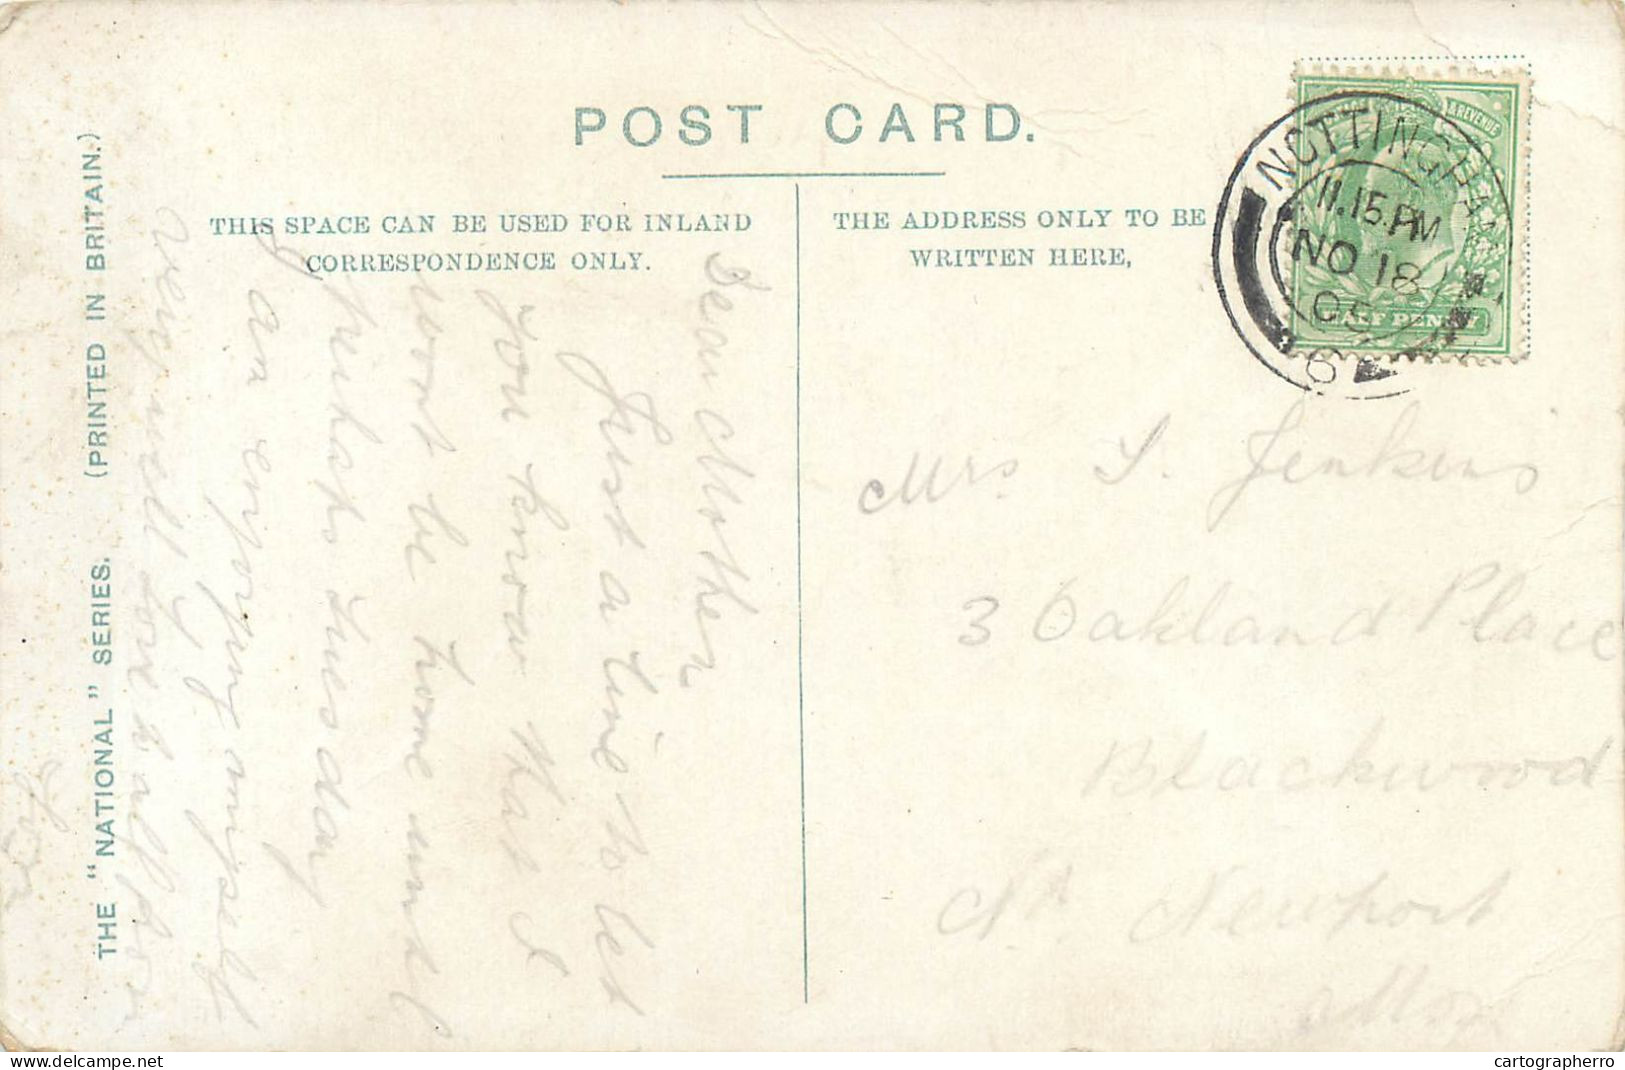 POST CARD.
THIS SPACE CAN BE USED FOR INLAND
CORRESPONDENCE ONLY.
THE ADDRESS ONLY TO BE
WRITTEN HERE,
THE "NATIONAL" SERIES. (PRINTED IN BRITAIN.)
Dear Mother
Just a line to let
you know that I
wont be home until
perhaps tuesday
I am enjoying myself
very well love to all from
& REVENUE
HALF PENNY
NOTTINGHAM
11.15.PM
NO 18
05
6
Mrs S. Jenkins
3 Oakland Place
Blackwood
Nr Newport
Mon
delcampe.net
cartographerro